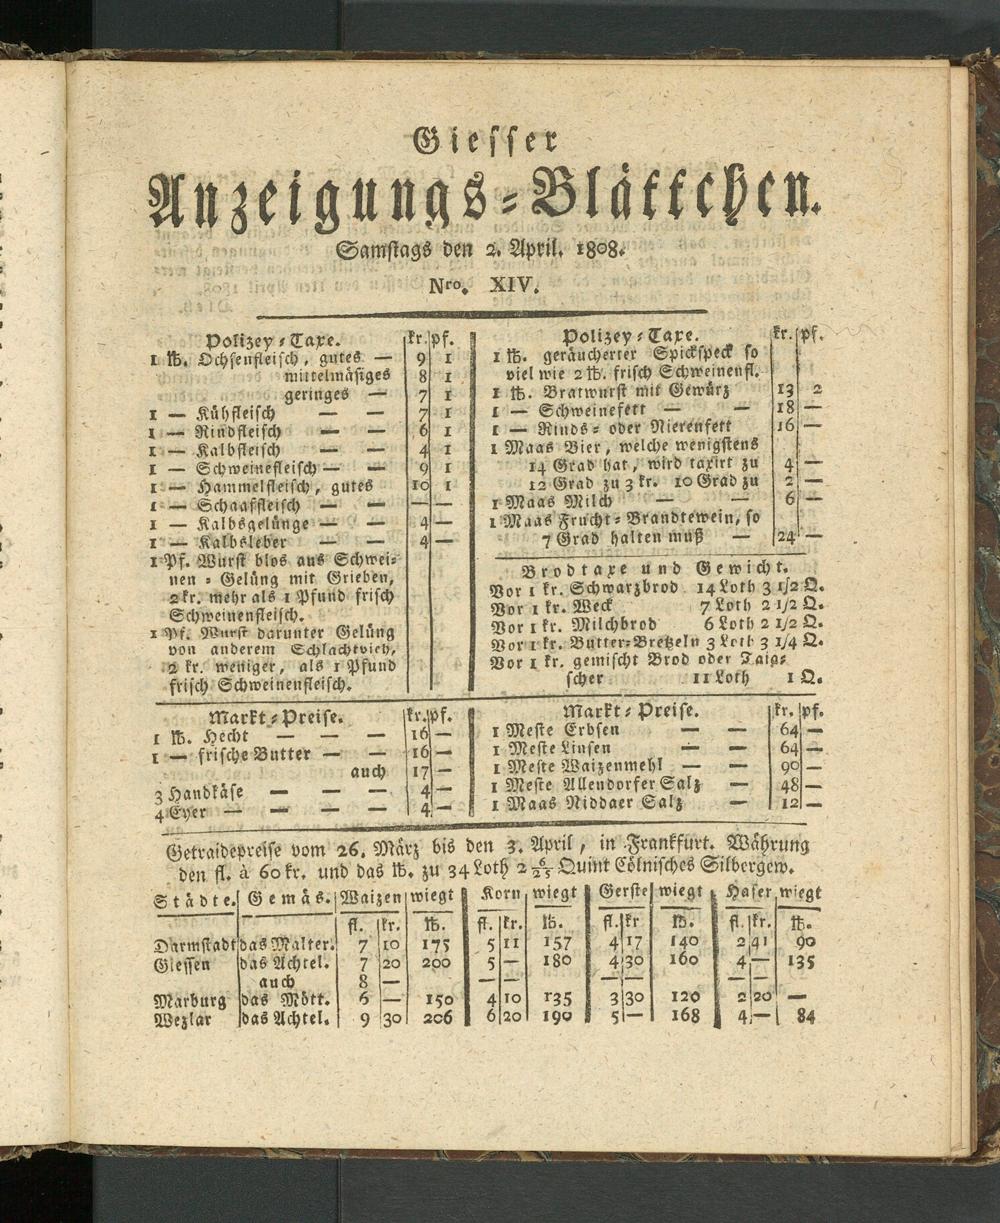 Giesser
Anzeigungs-Blättchen.
Samstags den 2. April. 1808.
Nro. XIV.
Polizey-Taxe. kr. pf.
1 ℔. Ochsenfleisch, gutes — 9 1
mittelmäsiges 8 1
geringes — 7 1
1 — Kühfleisch — — 7 1
1 — Rindfleisch — — 6 1
1 — Kalbfleisch — — 4 1
1 — Schweinefleisch — — 9 1
1 — Hammelfleisch, gutes 10 1
1 — Schaaffleisch — — — —
1 — Kalbsgelünge — — 4 —
1 — Kalbsleber — — 4 —
1 Pf. Wurst blos aus Schwei-
nen-Gelüng mit Grieben,
2 kr. mehr als 1 Pfund frisch
Schweinenfleisch.
1 Pf. Wurst darunter Gelüng
von anderem Schlachtvieh,
2 kr. weniger, als 1 Pfund
frisch Schweinenfleisch.
Polizey-Taxe. kr. pf.
1 ℔. geräucherter Spickspeck so
viel wie 2 ℔. frisch Schweinenfl.
1 ℔. Bratwurst mit Gewürz 13 2
1 — Schweinefett — — 18 —
1 — Rinds- oder Nierenfett 16 —
1 Maas Bier, welche wenigstens
14 Grad hat, wird taxirt zu 4 —
12 Grad zu 3 kr. 10 Grad zu 2 —
1 Maas Milch — — 6 —
1 Maas Frucht-Brandtewein, so
7 Grad halten muß — 24 —
Brodtaxe und Gewicht.
Vor 1 kr. Schwarzbrod 14 Loth 3 1/2 Q.
Vor 1 kr. Weck 7 Loth 2 1/2 Q.
Vor 1 kr. Milchbrod 6 Loth 2 1/2 Q.
Vor 1 kr. Butter-Bretzeln 3 Loth 3 1/4 Q.
Vor 1 kr. gemischt Brod oder Taig-
scher 11 Loth 1 Q.
Markt-Preise. kr. pf.
1 ℔. Hecht — — — 16 —
1 — frische Butter — — 16 —
auch 17 —
3 Handkäse — — — 4 —
4 Eyer — — — 4 —
Markt-Preise. kr. pf.
1 Meste Erbsen — — 64 —
1 Meste Linsen — — 64 —
1 Meste Waizenmehl — — 90 —
1 Meste Allendorfer Salz — 48 —
1 Maas Niddaer Salz — 12 —
Getraidepreise vom 26. März bis den 3. April, in Frankfurt. Währung
den fl. à 60 kr. und das ℔. zu 34 Loth 2 6/25 Quint Cölnisches Silbergew.
Städte. Gemäs. Waizen wiegt Korn wiegt Gerste wiegt Hafer wiegt
fl. kr. ℔. fl. kr. ℔. fl. kr ℔. fl. kr. ℔.
Darmstadt das Malter. 7 10 175 5 11 157 4 17 140 2 41 90
Giessen das Achtel. 7 20 200 5 — 180 4 30 160 4 — 135
auch 8 — — — — — — —
Marburg das Mött. 6 — 150 4 10 135 3 30 120 2 20 —
Wezlar das Achtel. 9 30 206 6 20 190 5 — 168 4 — 84